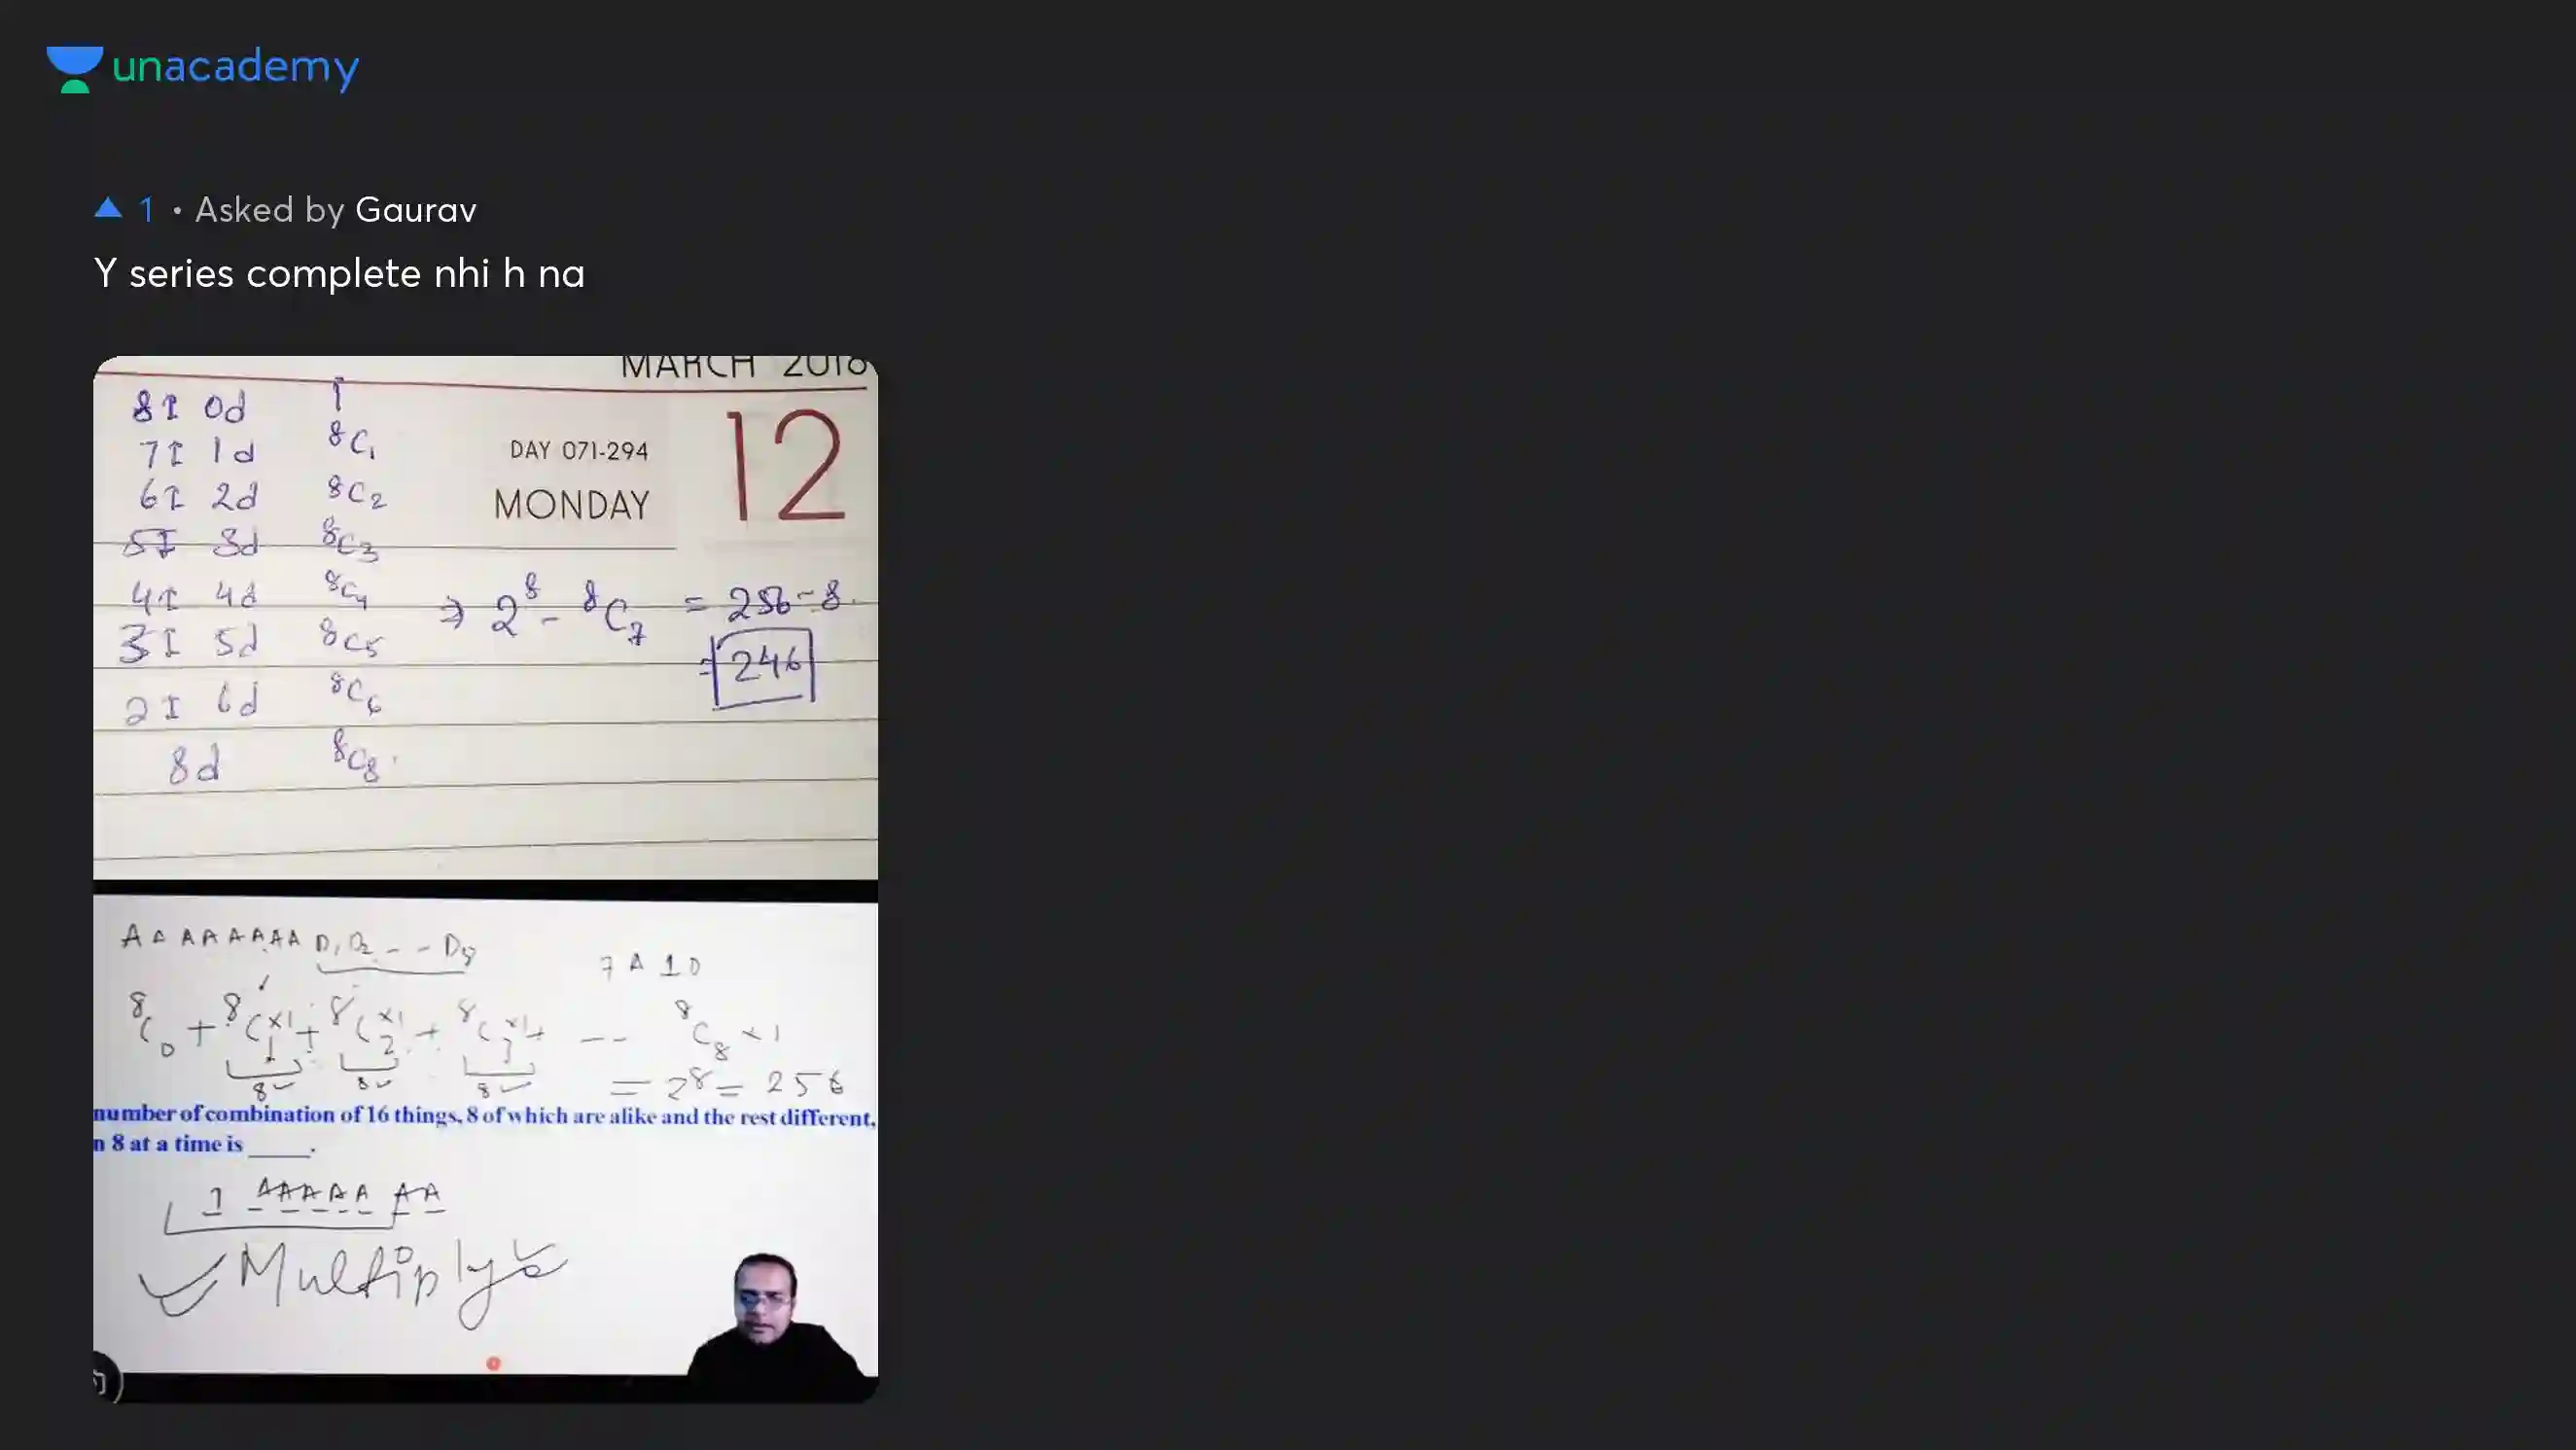 unacademy
1 • Asked by Gaurav
Y series complete nhi h na
MARCH 2018
12
DAY 071-294
MONDAY
8I 0d 1
7I 1d ⁸C₁
6I 2d ⁸C₂
5I 3d ⁸C₃
4I 4d ⁸C₄
3I 5d ⁸C₅
2I 6d ⁸C₆
8d ⁸C₈
⇒ 2⁸ - ⁸C₇ = 256-8
= 246
A A A A A A A A D₁ D₂ - - D₈
7 A 1 D
⁸C₀ + ⁸C₁×1 + ⁸C₂×1 + ⁸C₃×1 + -- ⁸C₈×1
8 8 8
= 2⁸ = 256
number of combination of 16 things, 8 of which are alike and the rest different,
n 8 at a time is _____.
1 A A A A A A A
Multiply